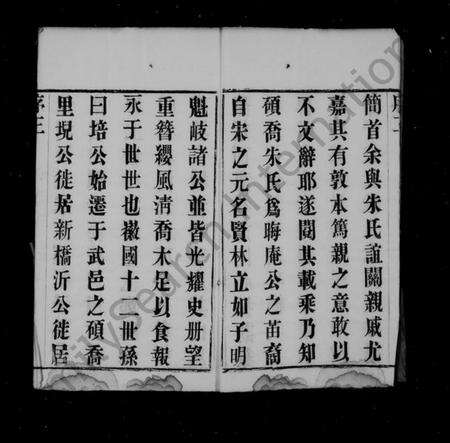 簡首余與朱氏誼關親戚尤
嘉其有敦本篤親之意敢以
不文辭耶遂閱其載乘乃知
碩喬朱氏爲晦庵公之苗裔
自宋之元名賢林立如子明
魁岐諸公並皆光耀史册望
重簪纓風淸喬木足以食報
永于世世也徽國十二世孫
曰培公始遷于武邑之碩喬
里現公徙居新橋沂公徙居
序三
FamilySearch International